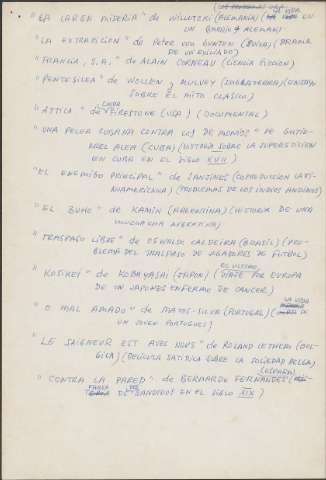 "LA LARGA MISERIA" de WILLUTZKI (ALEMANIA) (LA VIDA EN
UN BARRIO ALEMAN)
"LA EXTRADICION" de PETER VON GUNTEN (SUIZA) (DRAMA
DE UN EXILIADO)
"FRANCIA, S.A." de ALAIN CORNEAU (CIENCIA FICCION)
"PENTESILEA" de WOLLEN y MULVEY (INGLATERRA) (ENSAYO
SOBRE EL MITO CLASICO)
"ATTICA" de CINDA FIRESTONE (USA) (DOCUMENTAL)
"UNA PELEA CUBANA CONTRA LOS DEMONIOS" DE GUTIE-
RREZ ALEA (CUBA) (HISTORIA SOBRE LA SUPERSTICION
EN CUBA EN EL SIGLO XVII)
"EL ENEMIGO PRINCIPAL" de SANJINES (COPRODUCCION LATI-
NOAMERICANA) (PROBLEMAS DE LOS INDIOS ANDINOS)
"EL BUHO" de KAMIN (ARGENTINA) (HISTORIA DE UNA
ARGENTINA)
"TRASPASO LIBRE" de OSWALDO CALDEIRA (BRASIL) (PRO-
BLEMA DEL TRASPASO DE JUGADORES DE FUTBOL)
"KOSIKEI" de KOBAYASHI (JAPON) (EL ULTIMO VIAJE POR EUROPA
DE UN JAPONES ENFERMO DE CANCER)
"O MAL AMADO" de MATOS SILVA (PORTUGAL) (LA VIDA DE
UN JOVEN PORTUGUES)
"LE SAIGNEUR EST AVEC NOUS" de ROLAND LETHEM (BEL-
GICA) (PELICULA SATIRICA SOBRE LA SOCIEDAD BELGA)
"CONTRA LA PARED" de BERNARDO FERNANDEZ (ESPAÑA)
DE BANDIDOS EN EL SIGLO XIX)